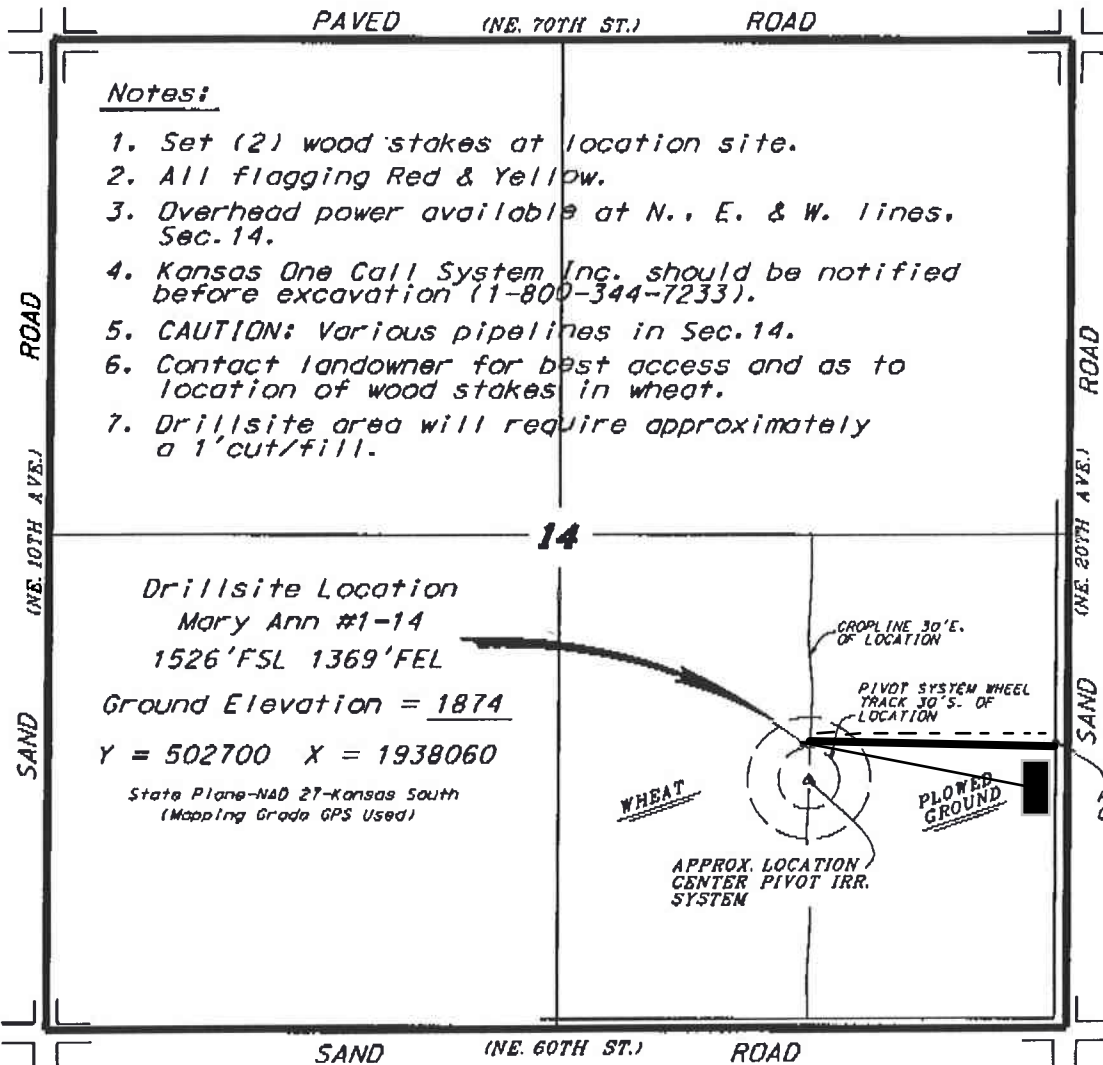 PAVED (NE. 70TH ST.) ROAD
Notes:
1. Set (2) wood stakes at location site.
2. All flagging Red & Yellow.
3. Overhead power available at N., E. & W. lines,
Sec. 14.
4. Kansas One Call System Inc. should be notified
before excavation (1-800-344-7233).
5. CAUTION: Various pipelines in Sec. 14.
6. Contact landowner for best access and as to
location of wood stakes in wheat.
7. Drillsite area will require approximately
a 1' cut/fill.
ROAD
(NE. 10TH AVE.)
SAND
ROAD
(NE. 20TH AVE.)
SAND
14
Drillsite Location
Mary Ann #1-14
1526'FSL 1369'FEL
Ground Elevation = 1874
Y = 502700 X = 1938060
State Plane-NAD 27-Kansas South
(Mapping Grade GPS Used)
CROPLINE 30'E.
OF LOCATION
PIVOT SYSTEM WHEEL
TRACK 30'S. OF
LOCATION
WHEAT
PLOWED
GROUND
APPROX. LOCATION
CENTER PIVOT IRR.
SYSTEM
SAND (NE. 60TH ST.) ROAD